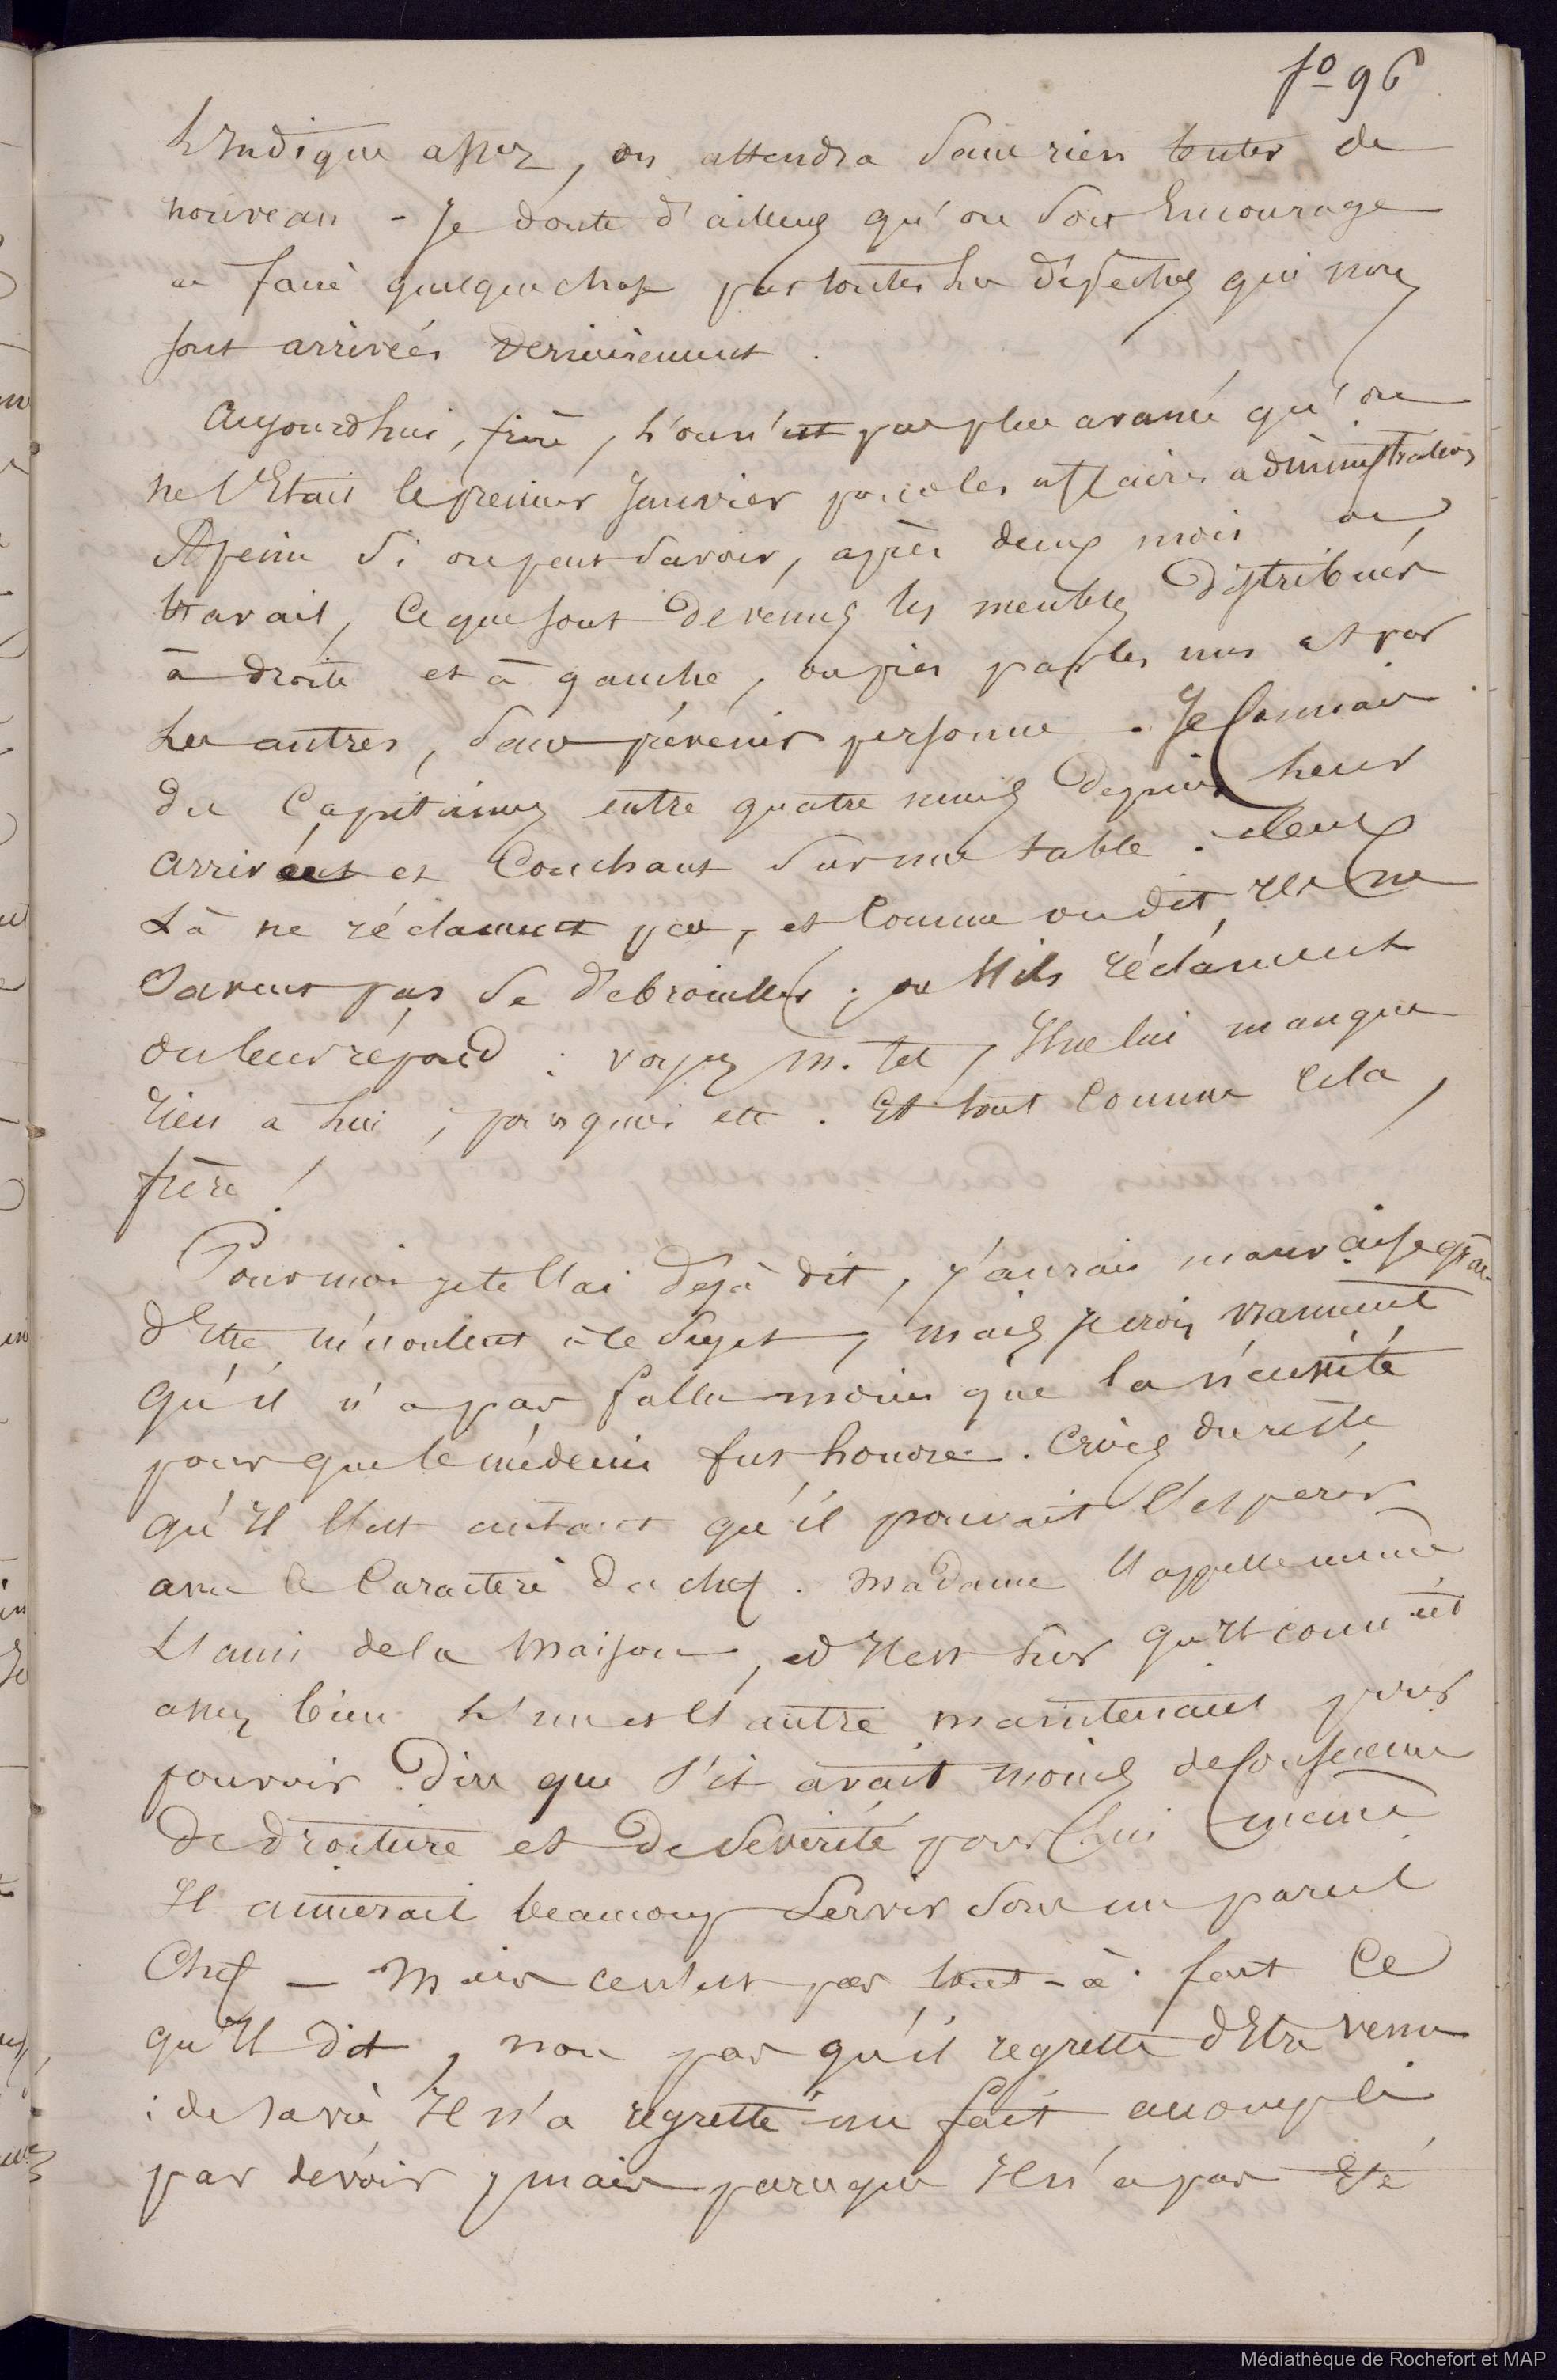 fo 96
L'Indique assez, on attendra sans rien tenter de
nouveau - Je doute d'ailleurs qu'on soit Encouragé
a faire quelque chose par toutes les dépêches qui nous
sont arrivées dernièrement.
Aujourdhui, frère, l'on n'est pas plus avancé qu'on
ne l'Etait le premier Janvier pour les affaires administratives
A peine si on peut savoir, après deux mois de
travail, ce que sont devenus les meubles distribués
à droite et à gauche, ou pris par les uns et par
les autres, sans prévenir personne. Je connais
des Capitaines entre quatre murs depuis leur
arrivée et Couchant sur une table. Ceux
Là ne réclament pas, et Comme on dit Ils ne
Savent pas se débrouiller; ou S'ils réclament
on leur répond : voyez M. tel, Il ne lui manque
rien a lui; pourquoi etc. Et tout Comme cela,
frère!
Pour moi je te l'ai déjà dit, j'aurais mauvaise grâce
d'Etre mécontent à ce Sujet, mais je crois vraiment
qu'il n'a pas fallu moins que la nécessité
pour que le médecin fut honoré. Crois du reste
qu'Il l'est autant qu'il pouvait l'espérer
avec le Caractère du chef. Madame l'appelle même
L'ami de la Maison, et Il est sûr qu'Il connait
assez bien L'un et l'autre maintenant pour
pouvoir dire que s'il avait moins de Conscience
de droiture et de Sévérité pour lui même
Il aimerait beaucoup Servir sous un pareil
Chef - Mais ce n'est pas tout-à-fait Ce
qu'Il dit, non pas qu'il regrette d'Etre venu
; de sa vie Il n'a regretté un fait accompli
par devoir, mais parceque Il n'a pas Eté
Médiathèque de Rochefort et MAP